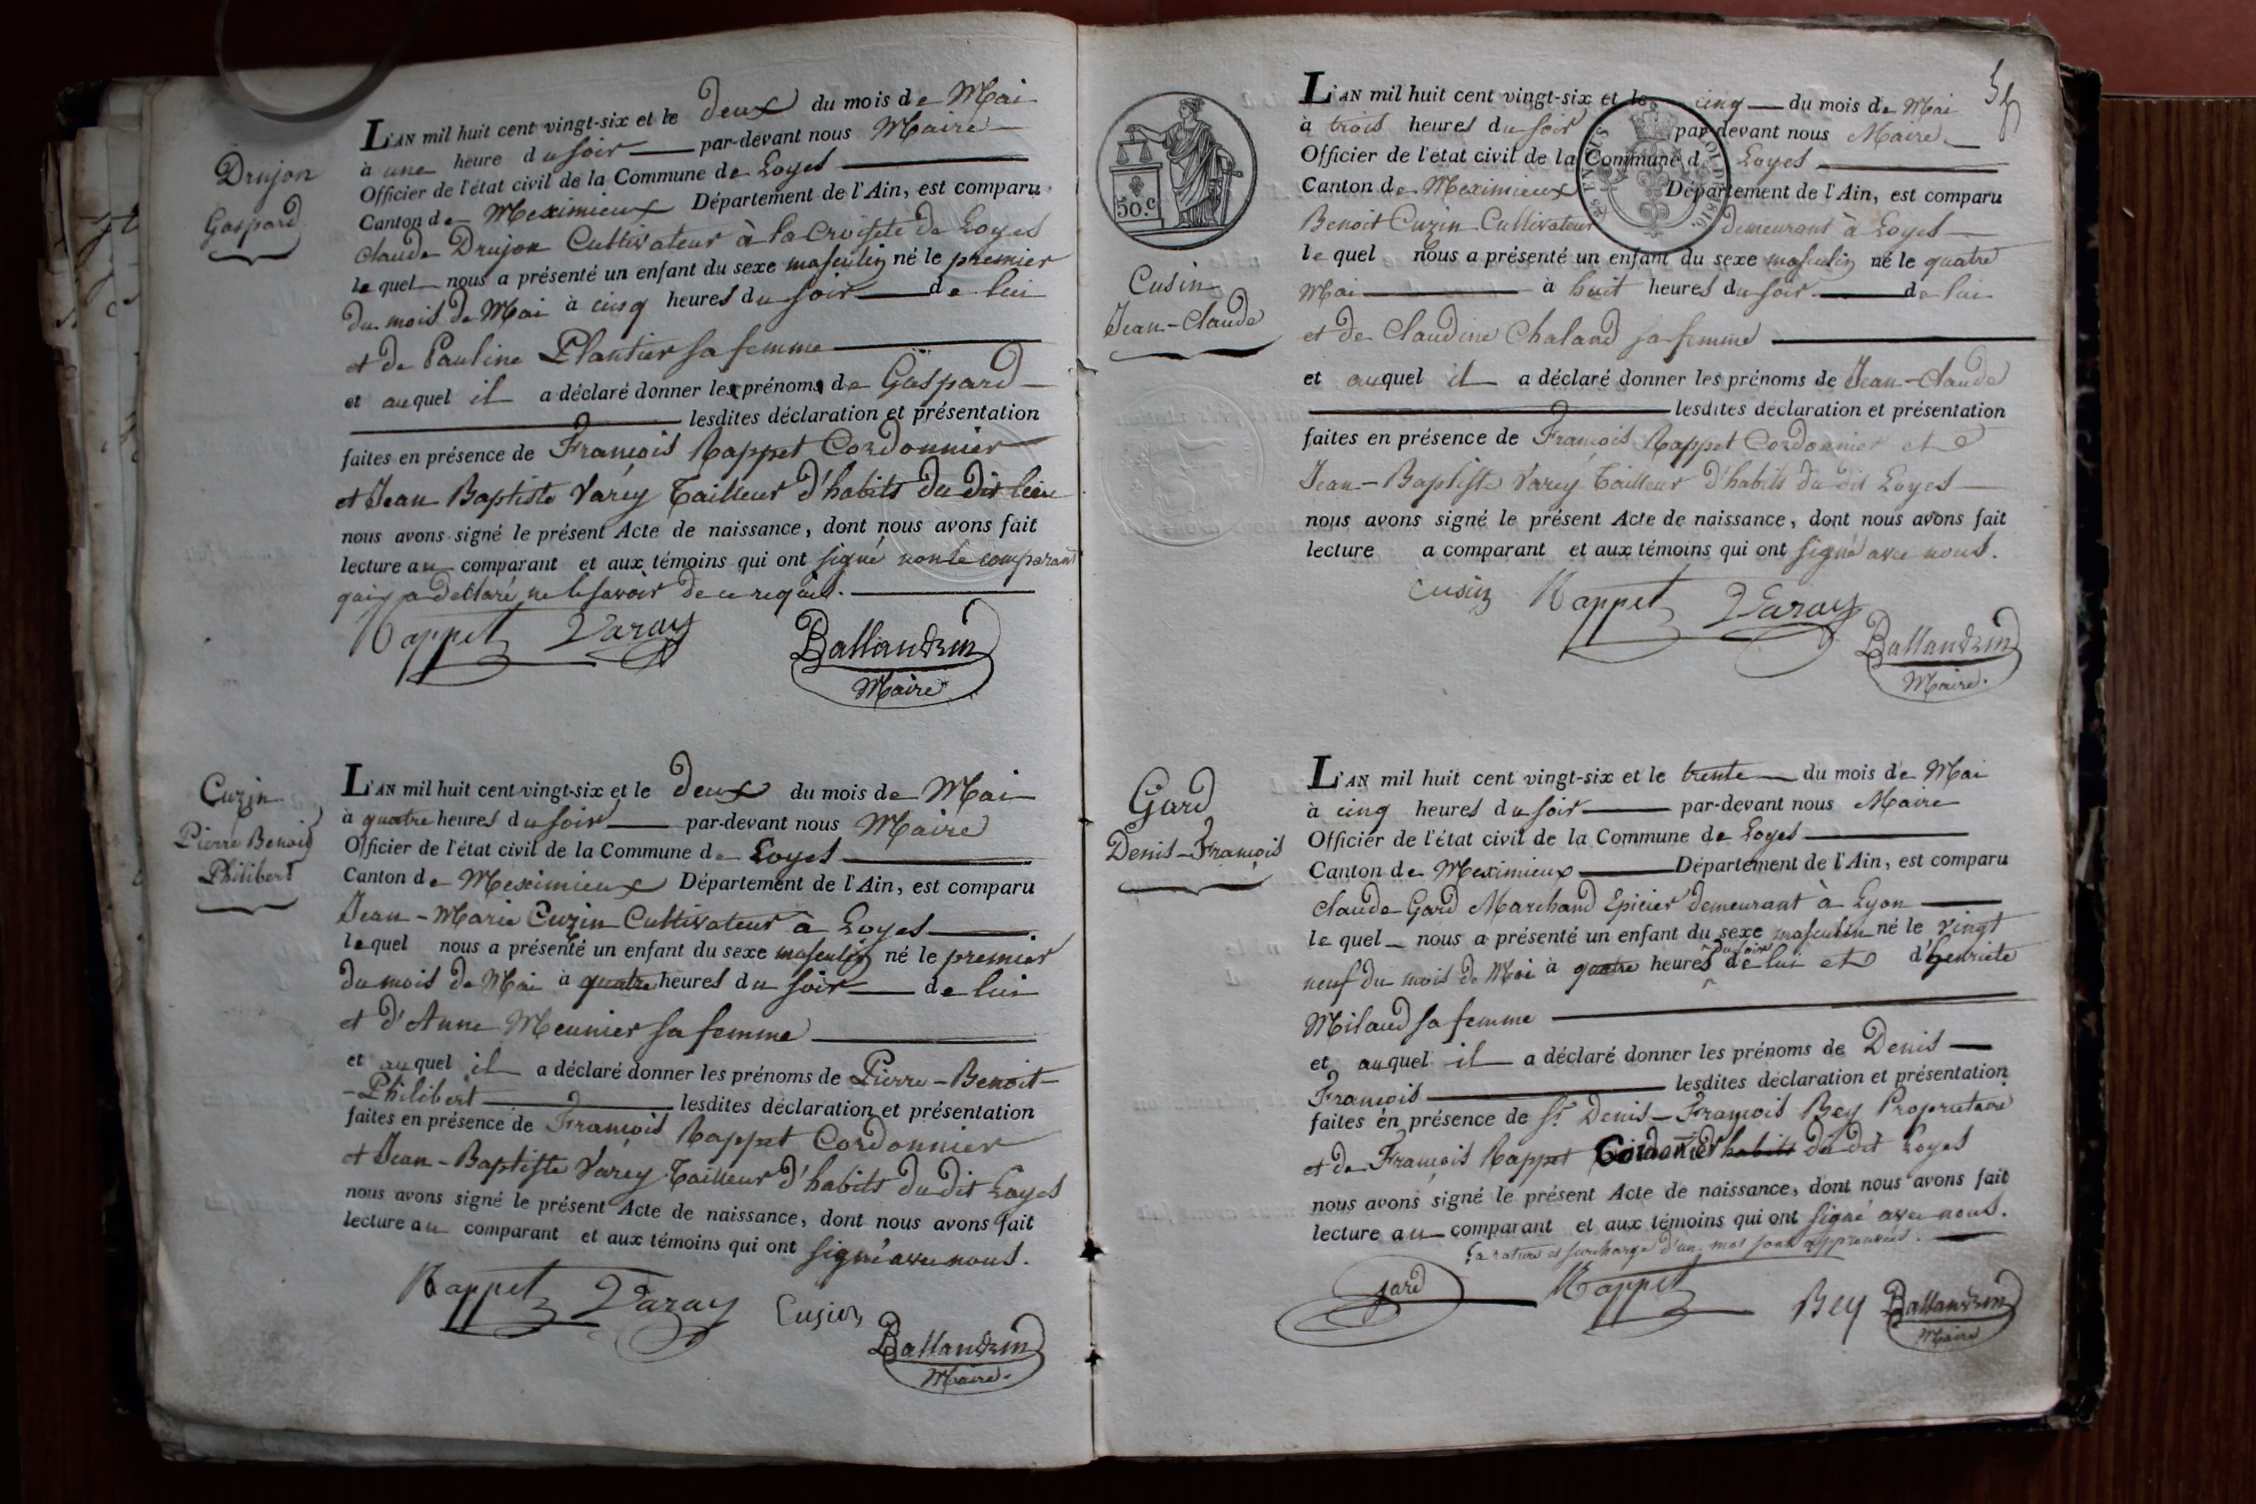 Drujon
Gaspard
L'AN mil huit cent vingt-six et le deux du mois de Mai
à une heure du soir par-devant nous Maire
Officier de l'état civil de la Commune de Loyes
Canton de Meximieux Département de l'Ain, est comparu
Claude Drujon Cultivateur à la Croisete de Loyes
lequel nous a présenté un enfant du sexe masculin né le premier
du mois de Mai à cinq heures du soir de lui
et de Pauline Plantier sa femme
et auquel il a déclaré donner les prénoms de Gaspard
lesdites déclaration et présentation
faites en présence de François Rappet Cordonnier
et Jean Baptiste Varéy Tailleur d'habits du dit lieu
nous avons signé le présent Acte de naissance, dont nous avons fait
lecture au comparant et aux témoins qui ont signé non le comparant
qui a déclaré ne le savoir de ce requis.
Rappet Varay Ballandrin
Maire
Cuzin
Pierre Benoit
Philibert
L'AN mil huit cent vingt-six et le deux du mois de Mai
à quatre heures du soir par-devant nous Maire
Officier de l'état civil de la Commune de Loyes
Canton de Meximieux Département de l'Ain, est comparu
Jean-Marie Cuzin Cultivateur à Loyes
lequel nous a présenté un enfant du sexe masculin né le premier
du mois de Mai à quatre heures du soir de lui
et d'Anne Meunier sa femme
et auquel il a déclaré donner les prénoms de Pierre-Benoit-
-Philibert lesdites déclaration et présentation
faites en présence de François Rappet Cordonnier
et Jean-Baptiste Varéy Tailleur d'habits du dit Loyes
nous avons signé le présent Acte de naissance, dont nous avons fait
lecture au comparant et aux témoins qui ont signé avec nous.
Rappet Varay Cusin Ballandrin
Maire.
50.c
Cusin
Jean-Claude
L'AN mil huit cent vingt-six et le cinq du mois de Mai
à trois heures du soir par-devant nous Maire
Officier de l'état civil de la Commune d Loyes
Canton de Meximieux Département de l'Ain, est comparu
Benoit Cuzin Cultivateur demeurant à Loyes
lequel nous a présenté un enfant du sexe masculin né le quatre
Mai à huit heures du soir de lui
et de Claudine Chaland sa femme
et auquel il a déclaré donner les prénoms de Jean-Claude
lesdites déclaration et présentation
faites en présence de François Rappet Cordonnier et
Jean-Baptiste Varéy Tailleur d'habits du dit Loyes
nous avons signé le présent Acte de naissance, dont nous avons fait
lecture a comparant et aux témoins qui ont signé avec nous.
Cusin Rappet Varay
Ballandrin
Maire.
Gard
Denis-François
L'AN mil huit cent vingt-six et le trente du mois de Mai
à cinq heures du soir par-devant nous Maire
Officier de l'état civil de la Commune de Loyes
Canton de Meximieux Département de l'Ain, est comparu
Claude Gard Marchand Epicier demeurant à Lyon
lequel nous a présenté un enfant du sexe masculin né le vingt
neuf du mois de Mai à quatre heures du soir de lui et d'henriete
Milaud sa femme
et auquel il a déclaré donner les prénoms de Denis
François lesdites déclaration et présentation
faites en présence de Sr. Denis-François Bey Propriétaire
et de François Rappet Cordonier habits du dit Loyes
nous avons signé le présent Acte de naissance, dont nous avons fait
lecture au comparant et aux témoins qui ont signé avec nous.
La rature et surcharge d'un mot sont approuvées.
gard Rappet Bey Ballandrin
Maire